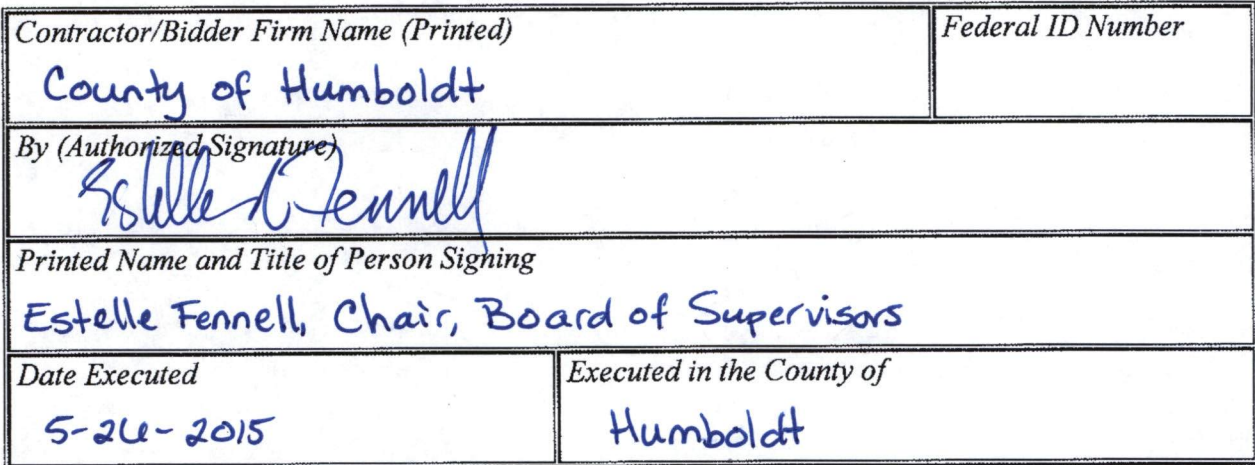 Contractor/Bidder Firm Name (Printed)
Federal ID Number
County of Humboldt
By (Authorized Signature)
Estelle Fennell
Printed Name and Title of Person Signing
Estelle Fennell, Chair, Board of Supervisors
Date Executed
Executed in the County of
5-26-2015
Humboldt